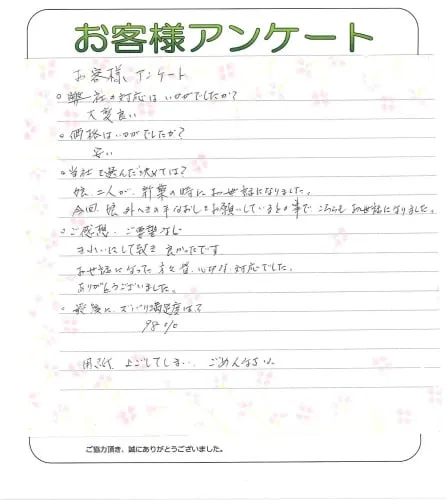 お客様アンケート
お客様アンケート
○弊社の対応はいかがでしたか?
大変良い
○価格はいかがでしたか?
安い
○当社を選んだ決めては?
娘二人が、卒業の時にお世話になりました。
今回、娘 の手なおしもお願いしているとの事で こちらも お世話になりました。
○ご感想、ご要望など
きれいにして頂き 良かったです
お世話になった 方々 皆、 対応でした。
ありがとうございました。
○最後に、ズバリ満足度は?
98%
用紙、よごしてしまい、ごめんなさい
ご協力頂き、誠にありがとうございました。